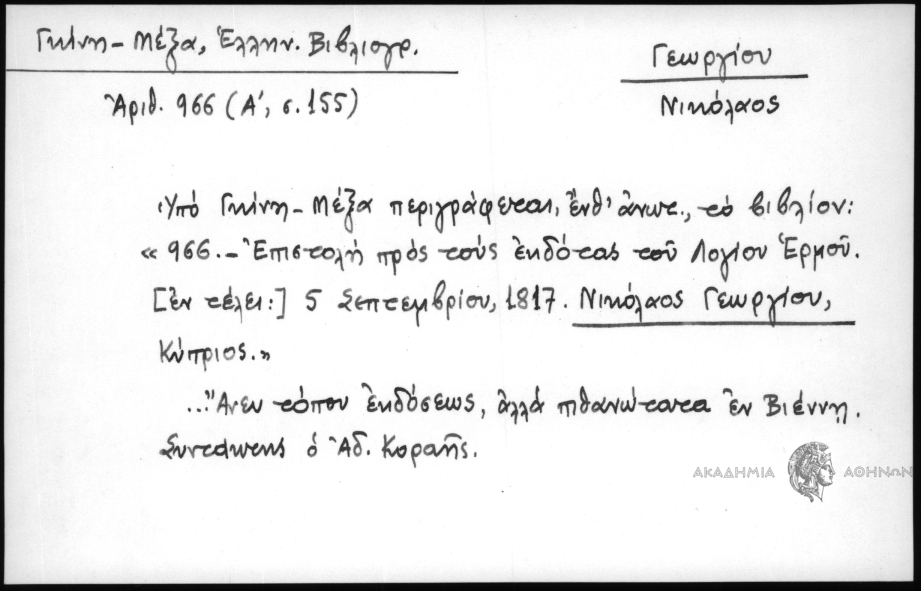 Γκίνη - Μέξα, Ἑλλην. Βιβλιογρ.
Ἀριθ. 966 (Α', σ. 155)
Γεωργίου
Νικόλαος
Ὑπό Γκίνη - Μέξα περιγράφεται, ἔνθ' ἀνωτ., τό βιβλίον:
« 966. - Ἐπιστολή πρός τούς ἐκδότας τοῦ Λογίου Ἑρμοῦ.
[ἐν τέλει:] 5 Σεπτεμβρίου, 1817. Νικόλαος Γεωργίου,
Κύπριος.»
..."Ἄνευ τόπου ἐκδόσεως, ἀλλά πιθανώτατα ἐν Βιέννῃ.
Συντάκτης ὁ Ἀδ. Κοραῆς.
ΑΚΑΔΗΜΙΑ ΑΘΗΝΩΝ